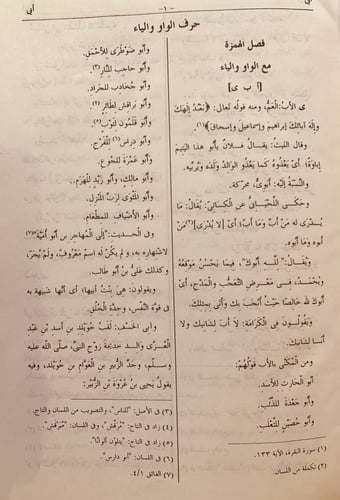 أبى
- ١ -
أبى
حرف الواو والياء
فصل الهمزة
مع الواو والياء
[أ ب ى]
ى الأب: العَمُّ، ومنه قولُه تَعالَى: ﴿نَعْبُدُ إِلٰهَكَ
وإِلٰهَ آبائِكَ إِبراهِيمَ وإِسماعِيلَ وإِسحاقَ﴾(١).
وقال الليثُ: يقالُ: فلانٌ يأبُو هذا اليَتِيمَ
إِباوَةً؛ أي يَغْذُوهُ كما يَغْذُو الوالِدُ ولَدَه ويُرَبِّيه.
والنِّسْبَةُ إِليه: أَبَوِىٌّ، محركة.
وحكَى اللِّحْيانِيُّ عن الكِسائِىِّ: يُقالُ: ما
يُدْرَى له مَنْ أَبٌ وما أَبٌ؛ أى [لا يُدْرَى](٢) مَنْ
أبوه وما أَبُوه.
ويُقالُ: "لِلّٰهِ أَبُوكَ"، فيما يَحْسُنُ مَوْقِعُهُ
ويُحْمَدُ، في مَعْرِضِ التَّعَجُّبِ والمَدْحِ، أى
أبوكَ لله خالصًا حيثُ أَنْجَبَ بكَ وأَتَى بمِثْلِكَ.
ويَقُولُونَ في الكَرامَةِ: لا أَبَ لِشانِيكَ ولا
أبا لِشانِيكَ.
ومن المُكَنَّى بالأَبِ قَوْلُهُم:
أَبُو الحَارِثِ للأَسَدِ.
وأبو جَعْدَةَ للذِّئْبِ.
وأبو حُصَيْنٍ للثَّعْلَبِ.
(١) سورة البقرة، الآية ١٣٣.
(٢) تكملة من اللسان.
وأبو ضَوْطَرَى للأَحْمَقِ.
وأبو حاجِبٍ للنَّارِ(٣).
وأبو جُخادِب للجَراد.
وأبو بَراقِش لطائِرٍ(٤).
وأبو قَلَمُونَ لثَوْبٍ(٥).
وأبو دِراسٍ(٦) للفَرْجِ.
وأبو عَمْرَةَ للجُوعِ.
وأبو مالِكٍ، وأبو زَيْدٍ للهَرَمِ.
وأبو المَثْوَى لرَبِّ المَنْزِل.
وأبو الأَضْيافِ للمِطْعام.
وفى الحديث: "إِلَى المُهاجِرِ بن أَبُو أُمَيَّةَ"(٧)
لاشْتِهارِه به، ولم يكُنْ له اسمٌ مَعْرُوفٌ، ولم يُجَرَّ،
وكذلك عليُّ بنُ أَبُو طالب.
ويقولون: هِىَ بِنْتُ أبِيها؛ أى أنَّها شَبِيهَة به
في قُوَّةِ النَّفْسِ، وحِدَّةِ الخُلُقِ.
وأبى الخَسْف: لَقَبُ خُوَيْلِد بن أَسَد بن عبد
العُزَّى والِد خديجةَ زوجِ النبىِّ، صلَّى الله عليه
وسلَّم، وجَدِّ الزُّبير بن العَوَّام بن خُوَيْلد، وفيه
يقول يَحيى بن عُرْوَةَ بن الزُّبَيْر:
(٣) في الأصل: "للناس"، والتصويب من اللسان والتاج.
(٤) زاد فى التاج: "مُرَقَّش"، وفى اللسان: "مُبَرْقَش".
(٥) زاد في التاج: "يتلون ألوانًا".
(٦) في اللسان: "أبو دارس".
(٧) الفائق ٤/١.